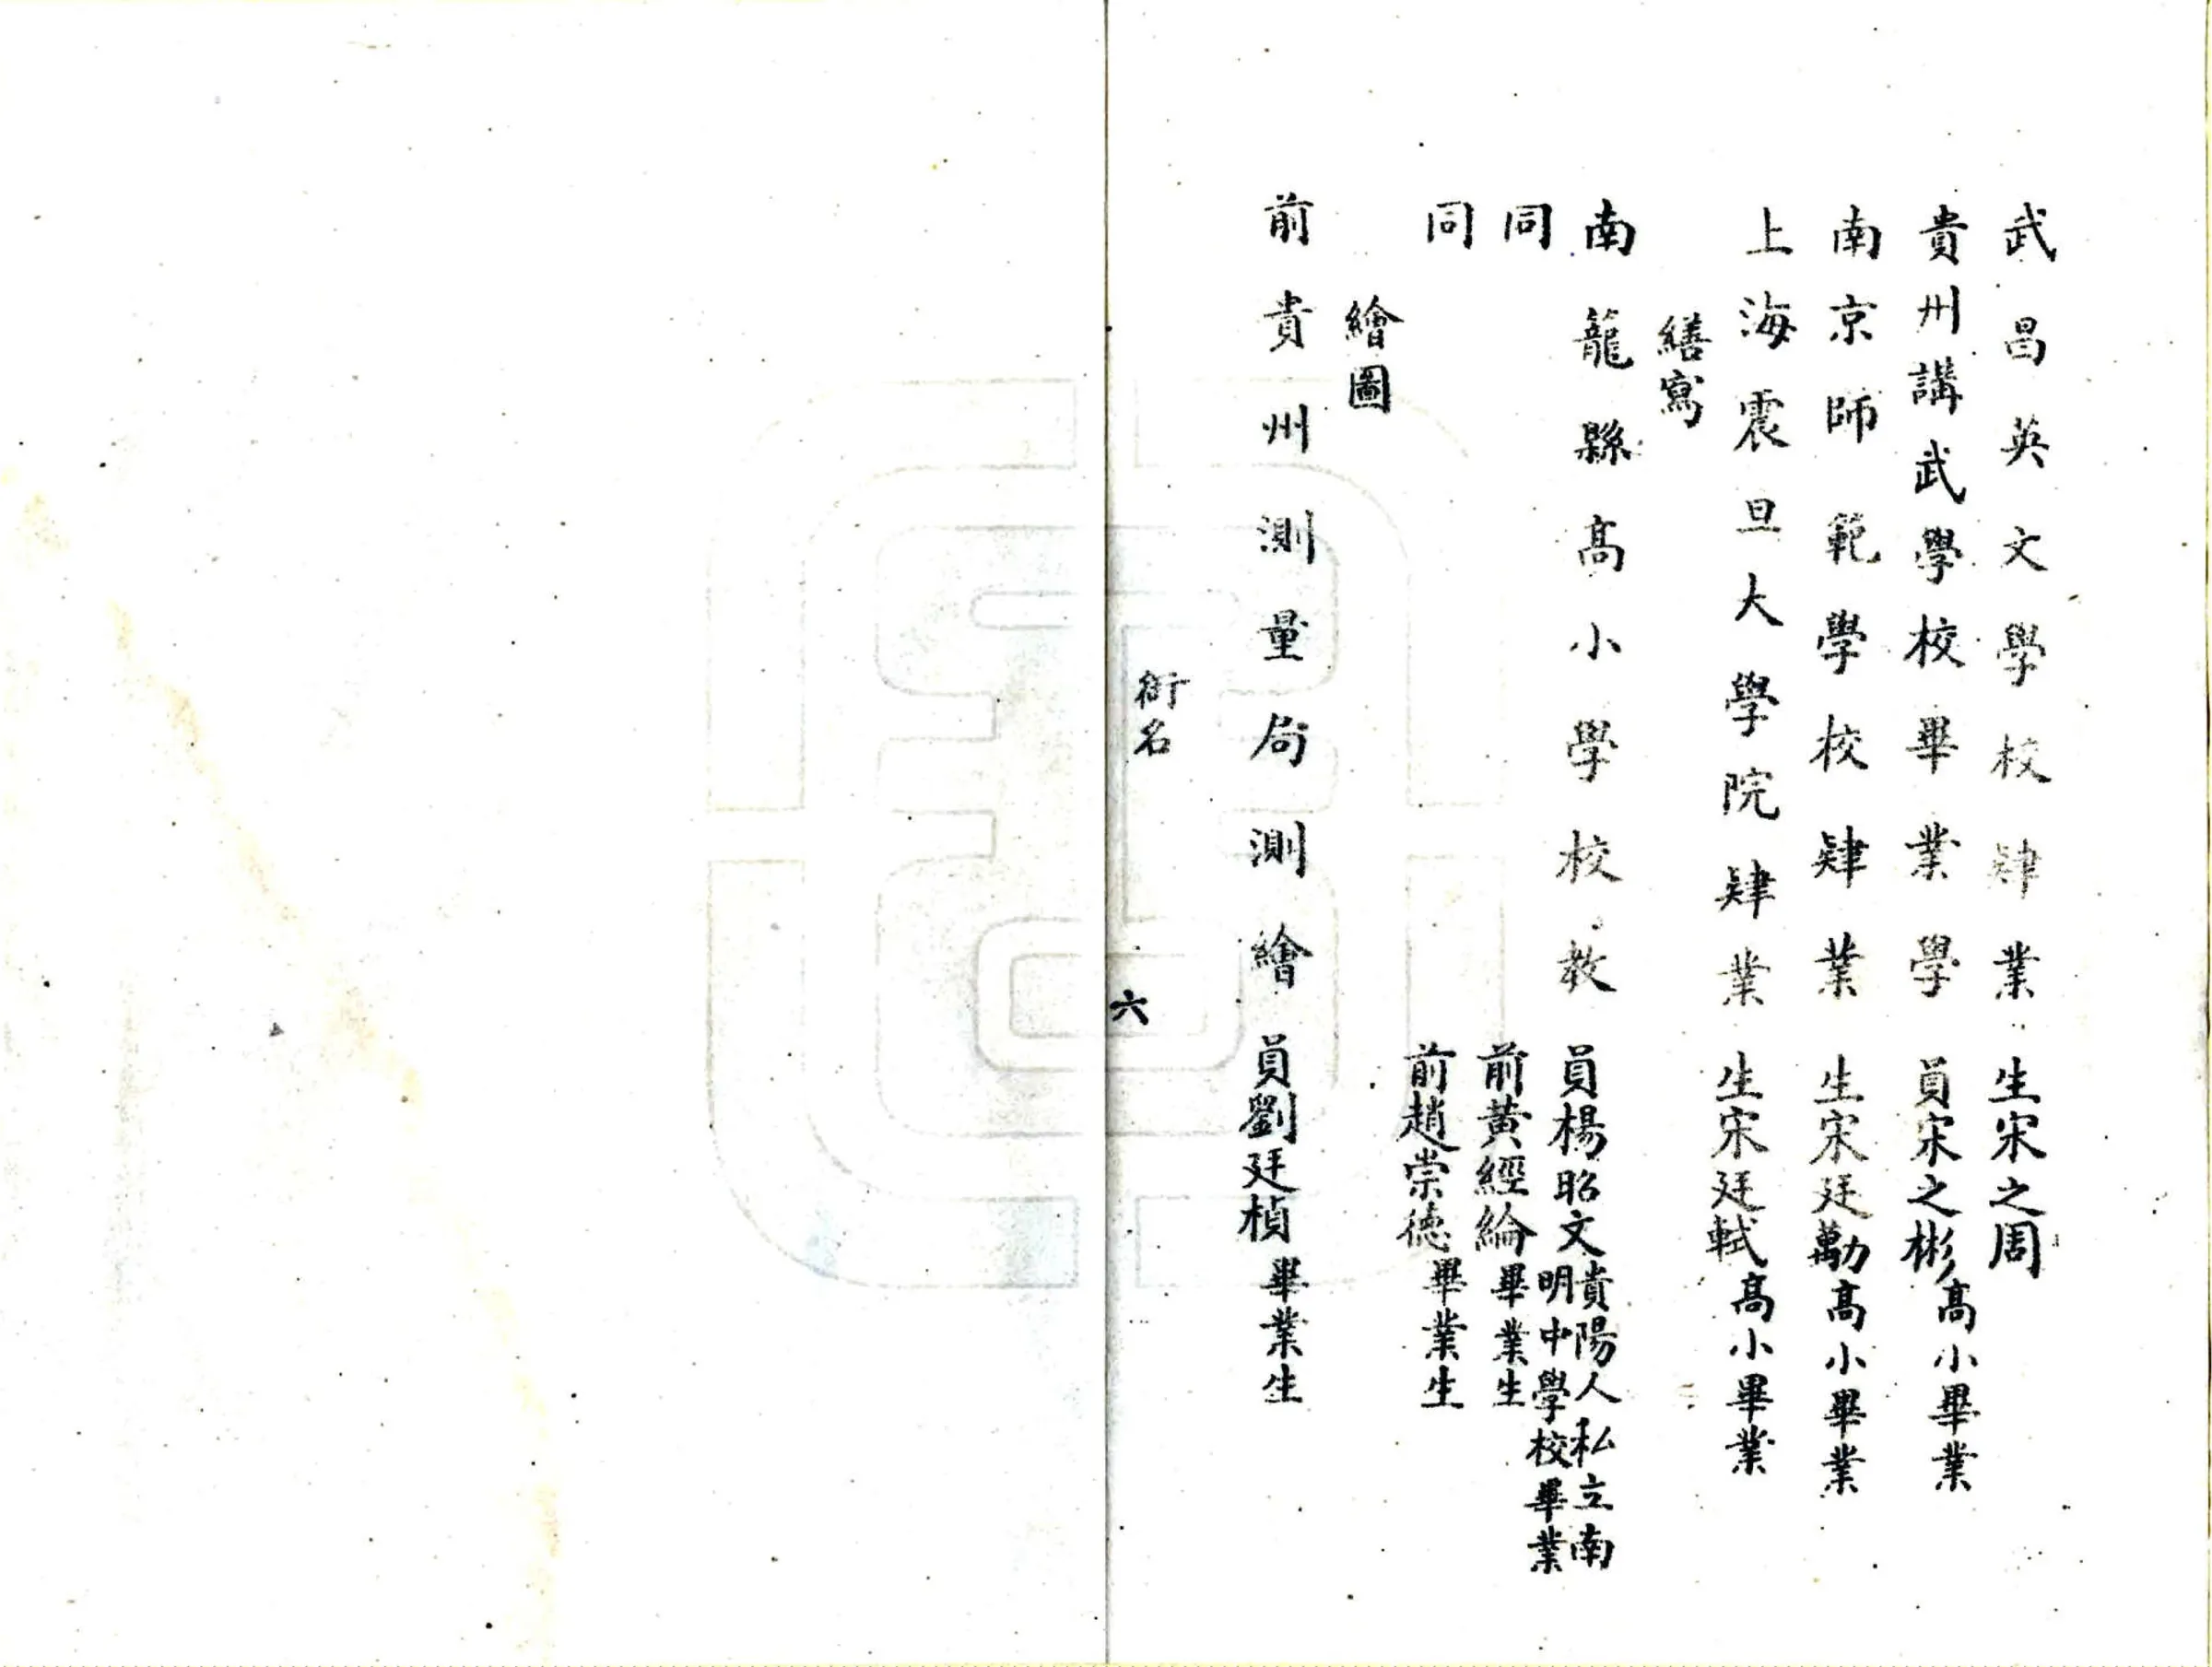 武昌英文學校肄業生宋之周
貴州講武學校畢業學員宋之彬高小畢業
南京師範學校肄業生宋廷勱高小畢業
上海震旦大學院肄業生宋廷軾高小畢業
繕寫
南龍縣高小學校教員楊昭文貴陽人私立南
明中學校畢業
同前黃經綸畢業生
同前趙崇德畢業生
繪圖
前貴州測量局測繪員劉廷楨畢業生
銜名
六